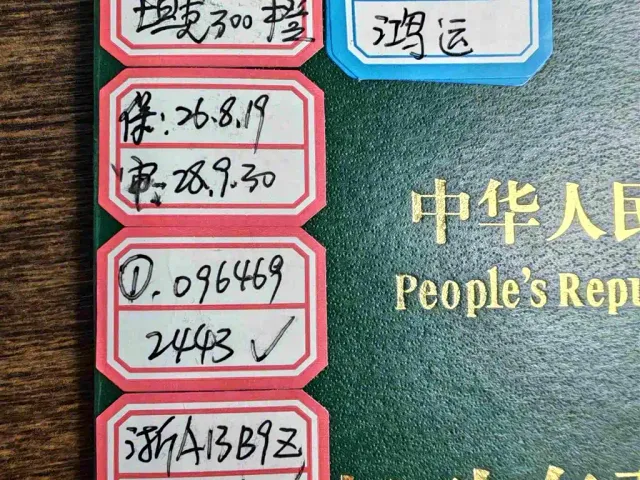 坦克300 中控
鸿运
保:26.8.19
审:28.9.30
①.096469
2443 ✓
浙A13B9Z
中华人民
People's Repu